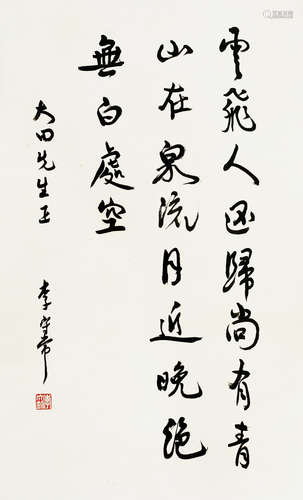 雲飛人歸尚有青
山在泉流月近晚絕
無白處空
大田先生正
李守常